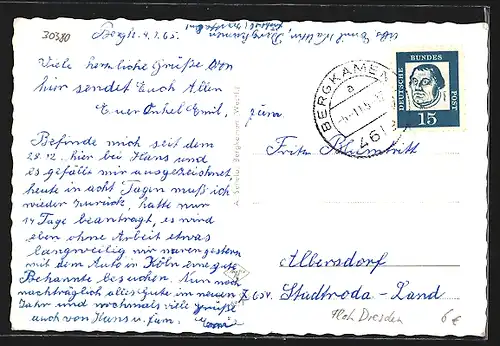 30380
Bergk. 4.1.65.
Viele herzliche Grüße von
hier sendet Euch Allen
Euer Onkel Emil,
Befinde mich seit dem
28.12. hier bei Hans und
es gefällt mir ausgezeichnet
heute in acht Tagen muß ich
wieder zurück, hatte nur
14 Tage beantragt, es wird
eben ohne Arbeit etwas
langweilig wir waren gestern
mit dem Auto in Köln eine gute
Bekannte besuchen. Nun noch
nachträglich alles Gute im neuen
Jahr und nochmals viele Grüße
auch von Hans u. fam. Emil
BERGKAMEN
a
461
DEUTSCHE
BUNDES
POST
15
zum
Fritz
Albersdorf
Stadtroda-Land
Dresden
6 €